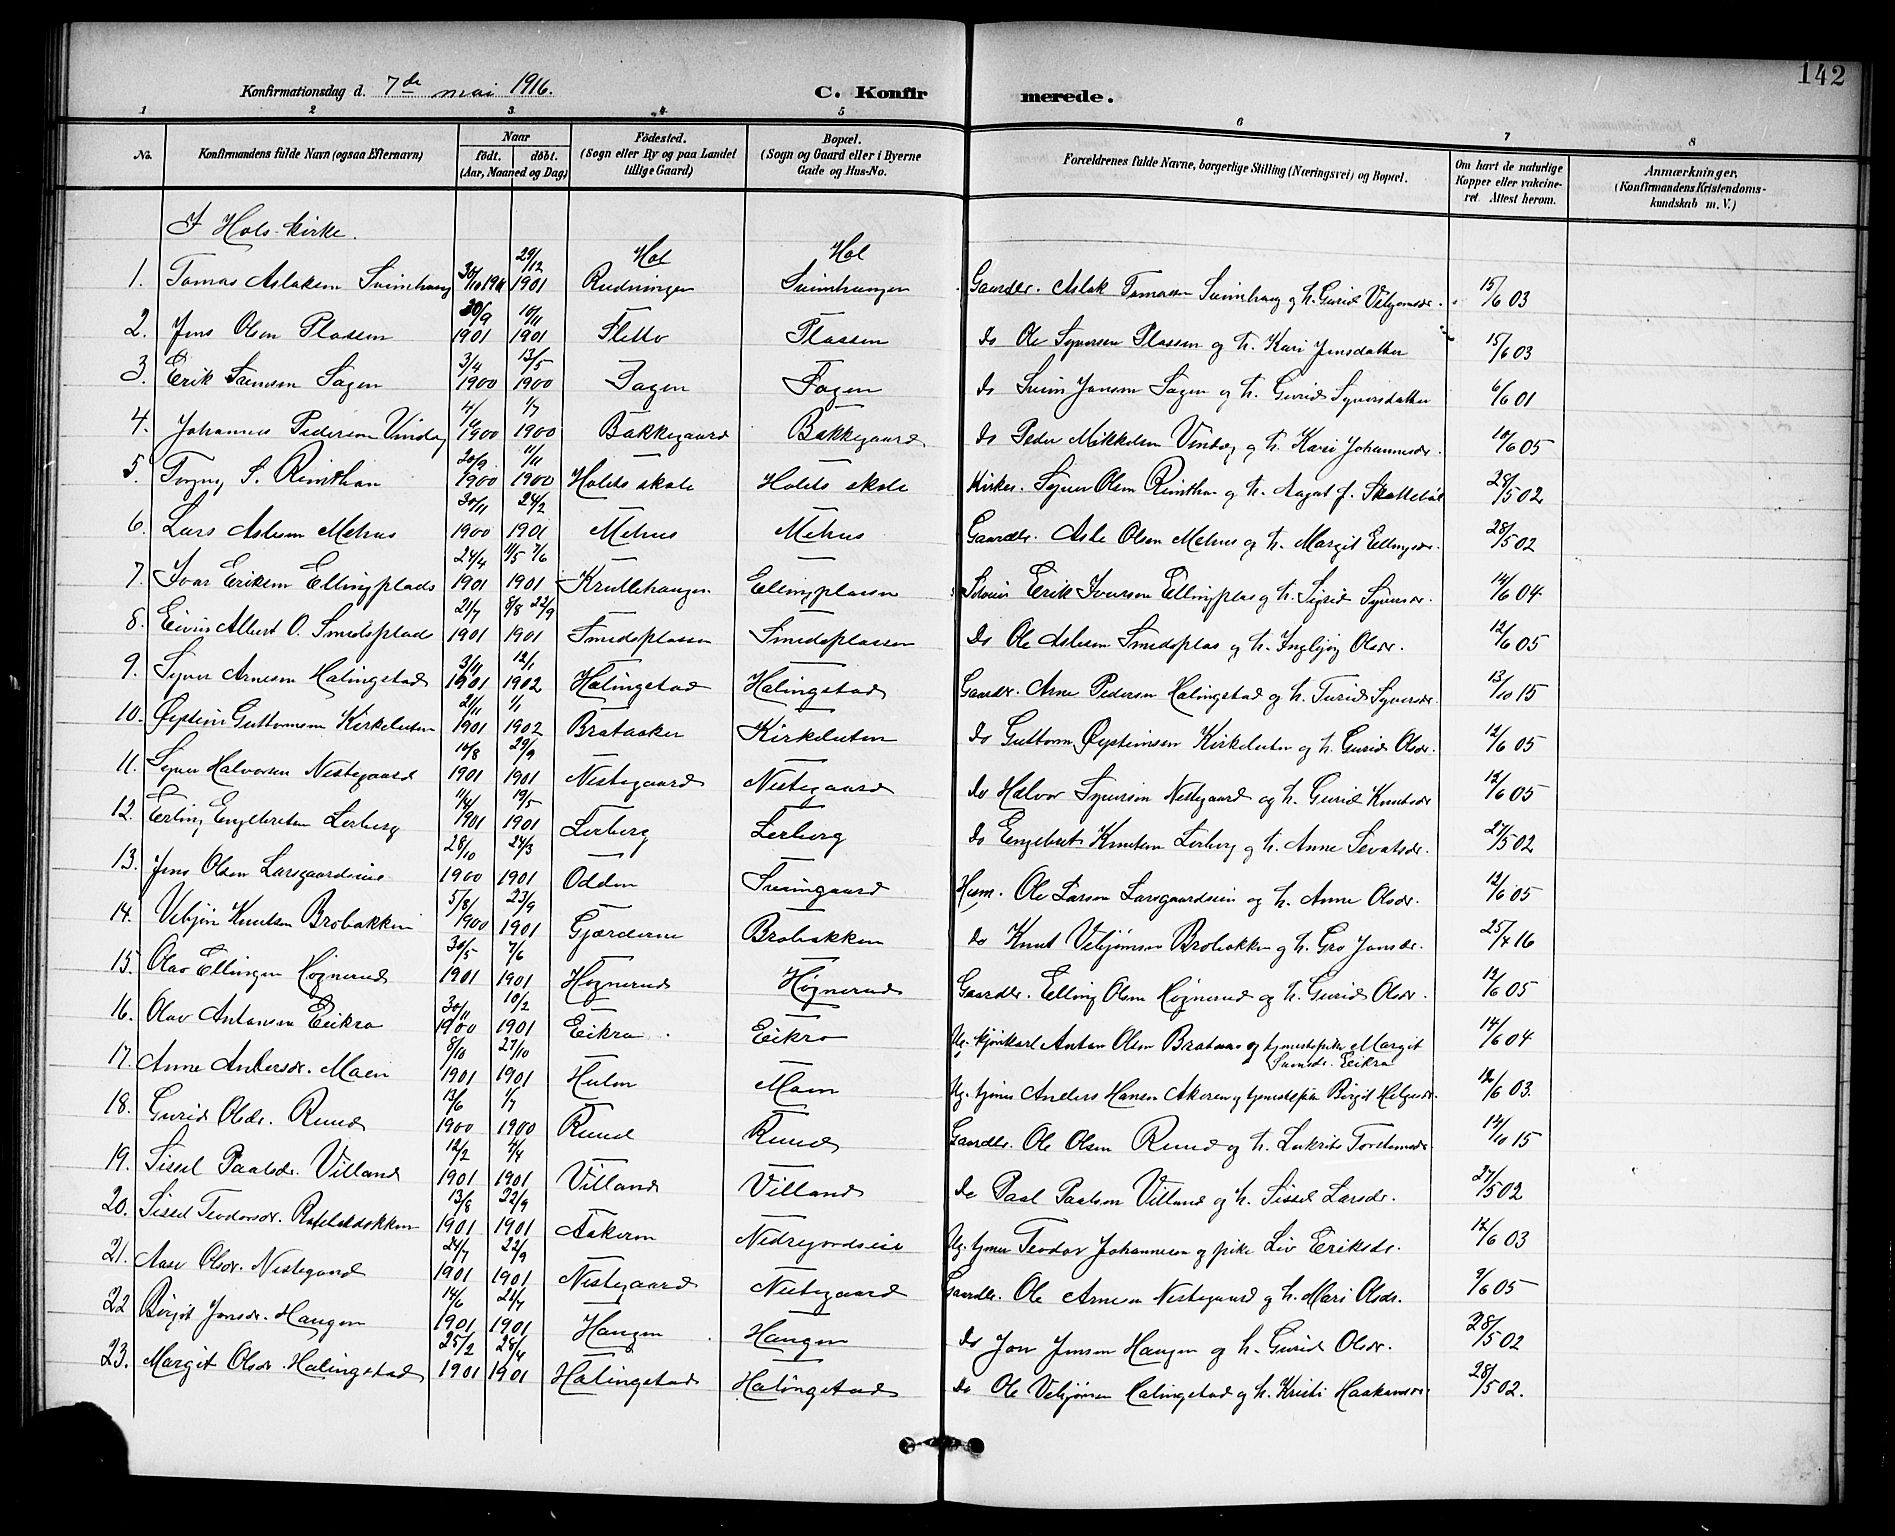 142
Konfirmationsdag d. 7de mai 1916. C. Konfirmerede.
1 2 3. 4 5 6 7 8
No. Konfirmandens fulde Navn (ogsaa Efternavn) Naar födt. döbt. (Aar, Maaned og Dag) Födested. (Sogn eller By og paa Landet tillige Gaard) Bopæl. (Sogn og Gaard eller i Byerne Gade og Hus-No. Forældrenes fulde Navne, borgerlige Stilling (Næringsvei) og Bopæl. Om havt de naturlige Kopper eller vakcineret. Attest herom. Anmærkninger. (Konfirmandens Kristendomskundskab m. V.)
I Hols kirke.
Hol Hol
1. Tomas Aslaksen Sveinhaug 30/10 1901 29/12 1901 Rudningen Sveinhaugen Gaardbr. Aslak Tomassen Sveinhaug og h. Gurid Vebjørnsdr. 15/6 03
2. Jens Olsen Plassen 30/9 1901 10/11 1901 Fletto Plassen do Ole Syversen Plassen og h. Kari Jensdatter 15/6 03
3. Erik Sveinsen Sagen 3/4 1900 13/5 1900 Sagen Sagen do Svein Jonsen Sagen og h. Gurid Syversdatter 6/6 01
4. Johannes Pedersen Vindeg 4/6 1900 1/7 1900 Bakkegaard Bakkegaard do Peder Mikkelsen Vindeg og h. Kari Johannesdr. 10/6 05
5. Torgny S. Rimthun 20/9 1900 11/11 1900 Holets skole Holets skole Kirkes. Syver Olsen Rimthun og h. Aagot f. Skottebøl 28/5 02
6. Lars Aslesen Mehus 30/11 1900 24/2 1901 Mehus Mehus Gaardbr. Asle Olsen Mehus og h. Margit Ellingsdr. 28/5 02
7. Ivar Eriksen Ellingplads 24/4 1901 11/5 7/6 1901 Krullehaugen Ellingplassen Selveier Erik Iversen Ellingplas og h. Sigrid Syversdr. 14/6 04
8. Eivin Albert O. Smedsplads 21/7 1901 8/8 22/9 1901 Smedsplassen Smedsplassen do Ole Aslesen Smedsplas og h. Ingbjørg Olsdr. 12/6 05
9. Syver Arnesen Halingstad 3/11 1901 12/1 1902 Halingstad Halingstad Gaardbr. Arne Pedersen Halingstad og h. Turid Syversdr. 13/10 15
10. Øystein Guttormsen Kirkeluten 21/11 1901 1/1 1902 Brataaker Kirkeluten do Guttorm Øysteinsen Kirkeluten og h. Gurid Olsdr. 12/6 05
11. Syver Halvorsen Nestegaard 10/8 1901 29/9 1901 Nestegaard Nestegaard do Halvor Syversen Nestegaard og h. Gurid Knutsdr 12/6 05
12. Erling Engebretsen Lerberg 11/4 1901 19/5 1901 Lerberg Lerberg do Engebret Knutsen Lerberg og h. Anne Sevatsdr. 27/5 02
13. Jens Olsen Larsgaardseie 28/10 1900 24/3 1901 Odden Sveingaard Husm. Ole Larsen Larsgaardseie og h. Anne Olsdr. 12/6 05
14. Vebjørn Knutsen Brobakken 5/8 1900 23/9 1901 Gjærderne Brobakken do Knut Vebjørnsen Brobakken og h. Gro Jonsdr. 25/4 16
15. Olav Ellingsen Høgnerud 30/5 1901 7/6 1901 Høgnerud Høgnerud Gaardbr. Elling Olsen Høgnerud og h. Gurid Olsdr. 12/6 05
16. Olav Antonsen Eikro 30/11 1900 10/2 1901 Eikro Eikro Ug. Anton Olsen og tjenestepike Margit Eikro 14/6 04
17. Anne Andersdr. Moen 8/10 1901 27/10 1901 Holm Moen Ug. tjener Anders Hansen Akeren og tjenestepike Birgit Helgesdr. 12/6 03.
18. Gurid Olsdr. Ruud 13/6 1900 1/7 1900 Ruud Ruud Gaardbr. Ole Olsen Ruud og h. 14/10 15
19. Sissel Paalsdr. Villand 12/2 1901 4/4 1901 Villand Villand do Paal Paalsen Villand og h. Sissel Larsdr. 27/5 02
20. Sissel Teodorsdr. 13/8 1901 22/9 1901 Aakeren Nedregordseie Ug. tjener Teodor Johannesen og pike Liv Eriksdr. 12/6 03
21. Aase Olsdr. Nestegaard 24/7 1901 22/9 1901 Nestegaard Nestegaard Gaardbr. Ole Arnesen Nestegaard og h. Mari Olsdr. 9/6 05
22 Birgit Jonsdr. Haugen 14/6 1901 21/7 1901 Haugen Haugen do Jon Jensen Haugen og h. Gurid Olsdr. 28/5 02
23. Margit Olsdr. Halingstad 25/2 1901 28/4 1901 Halingstad Halingstad do Ole Vebjørnsen Halingstad og h. Kristi Haakonsdr 28/5 02.